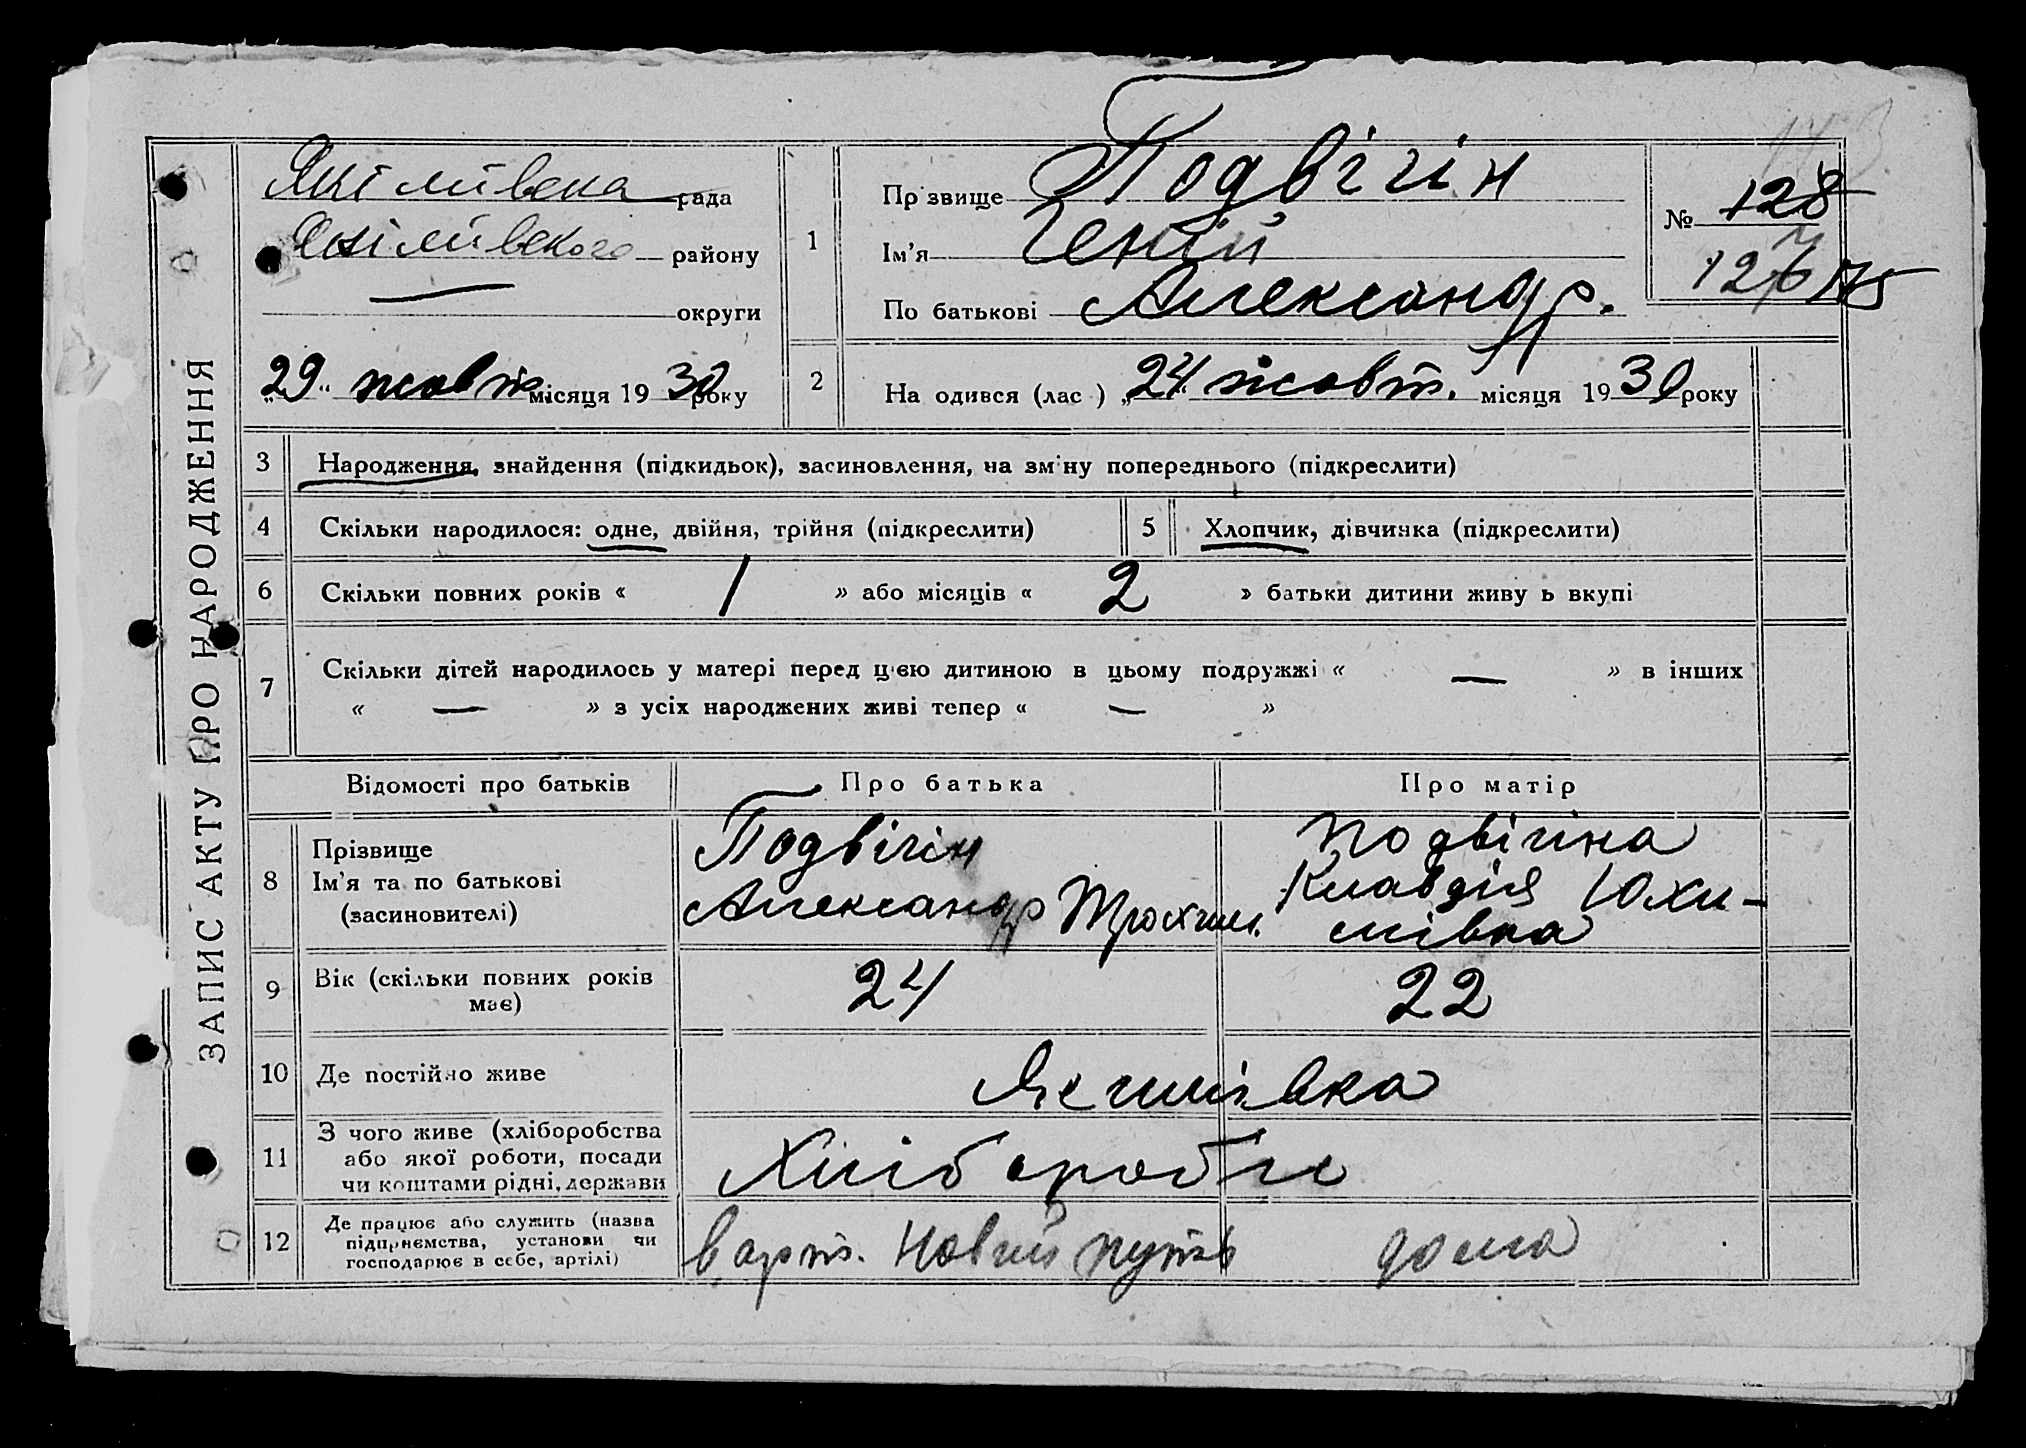 ЗАПИС АКТУ ПРО НАРОДЖЕННЯ
Якімівська рада
Якімівського району
— округи
„29“ жовт. місяця 1930 року
1
Прізвище Подвігін
Ім’я Геній
По батькові Александр.
№ 128
127 175
2
На одився (лас ) „24“ жовт. місяця 1930 року
3 Народження, знайдення (підкидьок), засиновлення, на зміну попереднього (підкреслити)
4 Скільки народилося: одне, двійня, трійня (підкреслити) 5 Хлопчик, дівчинка (підкреслити)
6 Скільки повних років « 1 » або місяців « 2 » батьки дитини живу ь вкупі
7 Скільки дітей народилось у матері перед цією дитиною в цьому подружжі « — » в інших
« — » з усіх народжених живі тепер « — »
Відомості про батьків Про батька Про матір
8 Прізвище
Ім’я та по батькові
(засиновителі)
Подвігін
Александр Трохим.
Подвігіна
Клавдія Юхи-
мівна
9 Вік (скільки повних років
має) 24 22
10 Де постійно живе Якимівка
11 З чого живе (хліборобства
або якої роботи, посади
чи коштами рідні, держави
Хліборобів
12 Де працює або служить (назва
підприємства, установи чи
господарює в себе, артілі)
в арт. Новий путь дома